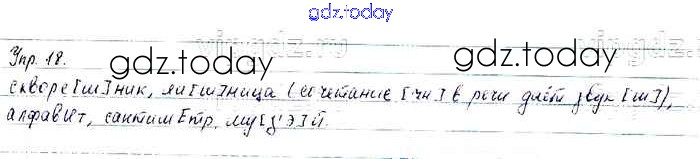 gdz.today
Упр. 18.
gdz.today
gdz.today
скворе[ш]ник, яи[ш]ница (сочетание [чн] в речи даёт звук [ш]),
алфавИт, сантимЕтр, му[з'э]й.